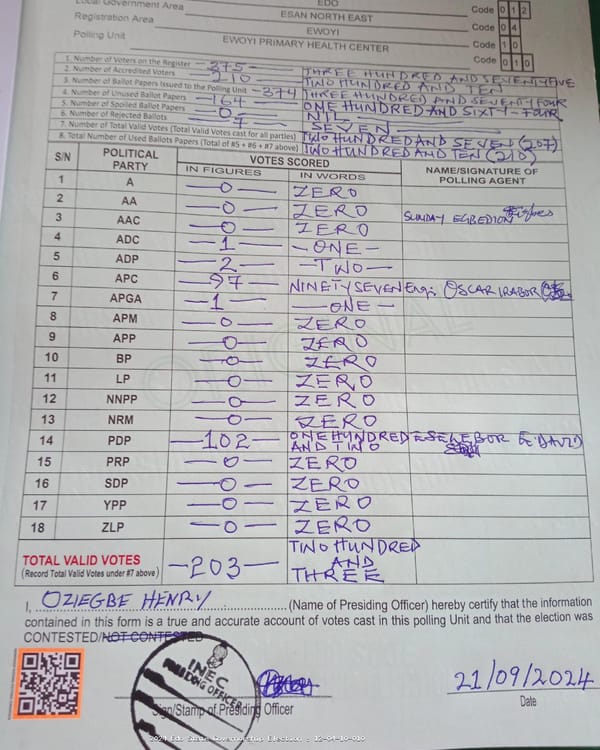 Local Government Area EDO Code 0 1 2
Registration Area ESAN NORTH EAST Code 0 4
EWOYI Code 1 0
Polling Unit EWOYI PRIMARY HEALTH CENTER Code 0 1 0
1. Number of Voters on the Register —375— THREE HUNDRED AND SEVENTY FIVE
2. Number of Accredited Voters —210— TWO HUNDRED AND TEN
3. Number of Ballot Papers Issued to the Polling Unit —374 THREE HUNDRED AND SEVENTY FOUR
4. Number of Unused Ballot Papers —164— ONE HUNDRED AND SIXTY-FOUR
5. Number of Spoiled Ballot Papers —0— NIL
6. Number of Rejected Ballots —7— SEVEN
7. Number of Total Valid Votes (Total Valid Votes cast for all parties) TWO HUNDRED AND SEVEN (207)
8. Total Number of Used Ballots Papers (Total of #5 + #6 + #7 above) TWO HUNDRED AND TEN (210)
S/N POLITICAL PARTY VOTES SCORED NAME/SIGNATURE OF POLLING AGENT
IN FIGURES IN WORDS
1 A —0— ZERO
2 AA —0— ZERO
3 AAC —0— ZERO SUNDAY EGBEDION
4 ADC —1— —ONE—
5 ADP —2— —TWO—
6 APC —97— NINETY SEVEN Eng. OSCAR IRABOR
7 APGA —1— —ONE—
8 APM —0— ZERO
9 APP —0— ZERO
10 BP —0— ZERO
11 LP —0— ZERO
12 NNPP —0— ZERO
13 NRM —0— ZERO
14 PDP —102— ONE HUNDRED AND TWO ESELEBOR E. DAVID
15 PRP —0— ZERO
16 SDP —0— ZERO
17 YPP —0— ZERO
18 ZLP —0— ZERO
TOTAL VALID VOTES —203— TWO HUNDRED AND THREE
(Record Total Valid Votes under #7 above)
I, OZIEGBE HENRY (Name of Presiding Officer) hereby certify that the information
contained in this form is a true and accurate account of votes cast in this polling Unit and that the election was
CONTESTED/NOT CONTESTED
INEC
PRESIDING OFFICER
21/09/2024
Sign/Stamp of Presiding Officer Date
2024 Edo State Governorship Election : 12-04-10-010